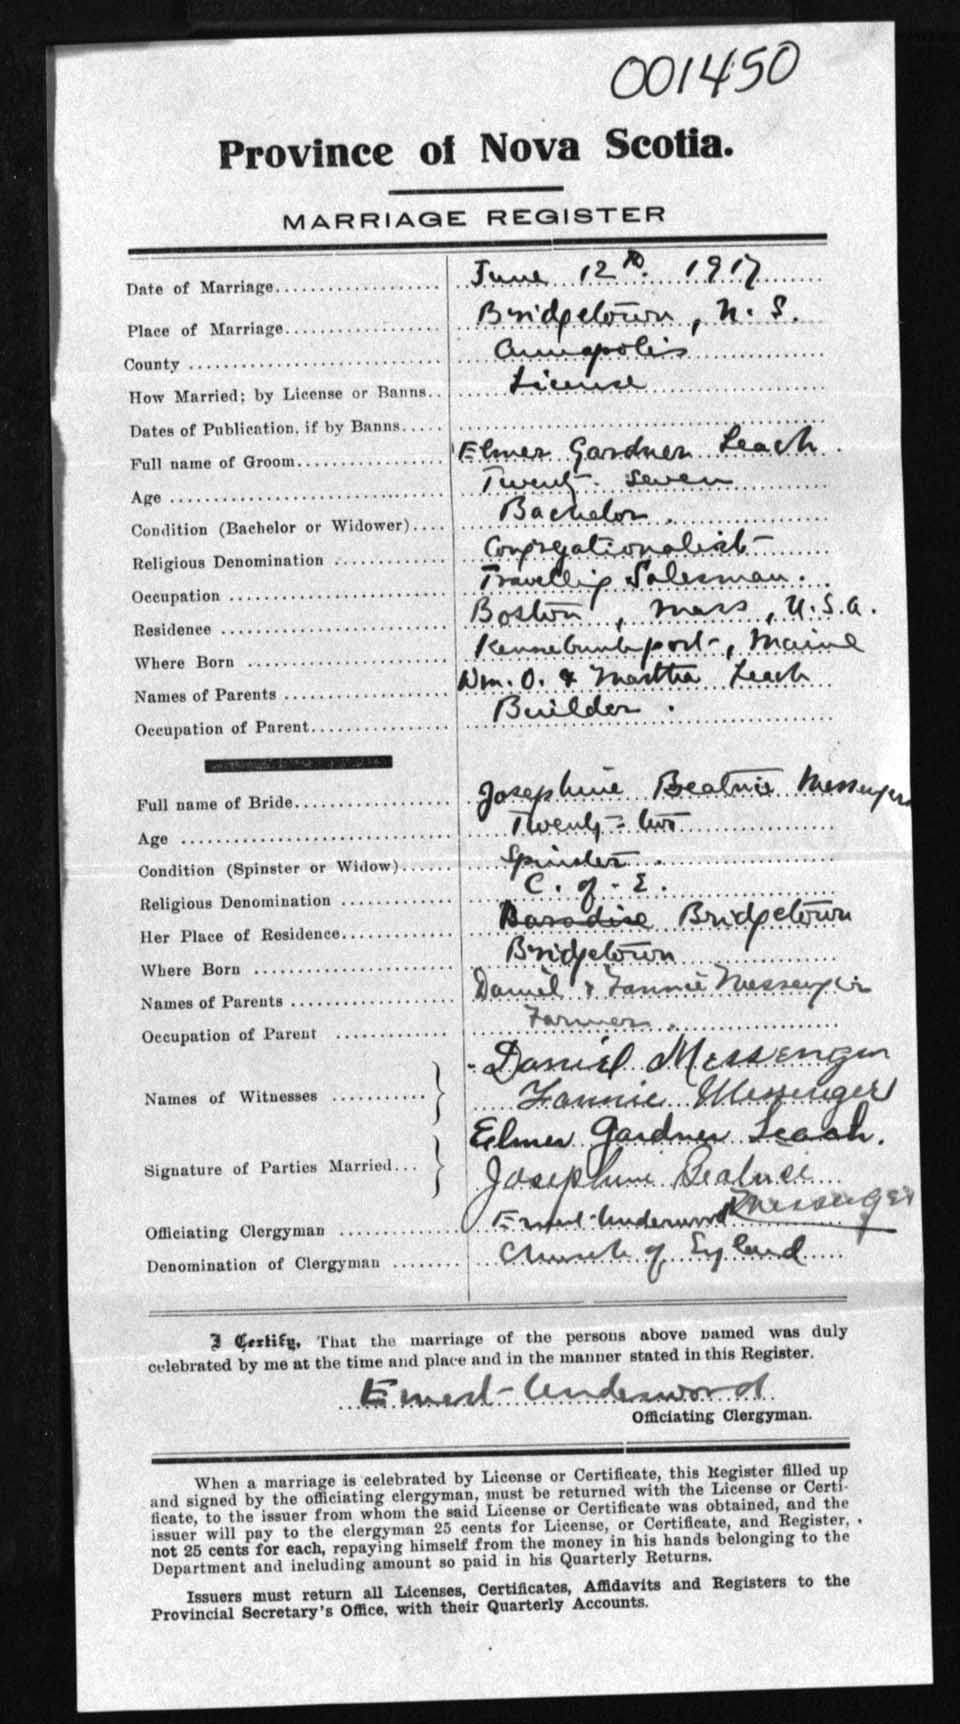 001450
Province of Nova Scotia.
MARRIAGE REGISTER
Date of Marriage.................... June 12th. 1917
Place of Marriage................... Bridgetown, N. S.
County .................... Annapolis
How Married; by License or Banns.. License
Dates of Publication, if by Banns.....
Full name of Groom................. Elmer Gardner Leach
Age .................... Twenty-Seven
Condition (Bachelor or Widower).... Bachelor.
Religious Denomination ............. Congregationalist
Occupation .................... Travelling Salesman.
Residence .................... Boston, Mass, U.S.A.
Where Born .................... Kennebunkport, Maine
Names of Parents .................... Wm. O. & Martha Leach
Occupation of Parent................. Builder.
Full name of Bride................... Josephine Beatrice Messenger
Age .................... Twenty-two
Condition (Spinster or Widow)...... Spinster.
Religious Denomination ............. C. of E.
Her Place of Residence............. Paradise Bridgetown
Where Born .................... Bridgetown
Names of Parents .................... Daniel & Fannie Messenger
Occupation of Parent ............. Farmer.
Names of Witnesses ............ } Daniel Messenger
Fannie Messenger
Signature of Parties Married... } Elmer Gardner Leach.
Josephine Beatrice
Messenger
Officiating Clergyman ............. Ernest Underwood
Denomination of Clergyman ........ Church of England
I Certify, That the marriage of the persons above named was duly
celebrated by me at the time and place and in the manner stated in this Register.
Ernest Underwood
Officiating Clergyman.
When a marriage is celebrated by License or Certificate, this Register filled up
and signed by the officiating clergyman, must be returned with the License or Certi-
ficate, to the issuer from whom the said License or Certificate was obtained, and the
issuer will pay to the clergyman 25 cents for License, or Certificate, and Register,
not 25 cents for each, repaying himself from the money in his hands belonging to the
Department and including amount so paid in his Quarterly Returns.
Issuers must return all Licenses, Certificates, Affidavits and Registers to the
Provincial Secretary's Office, with their Quarterly Accounts.